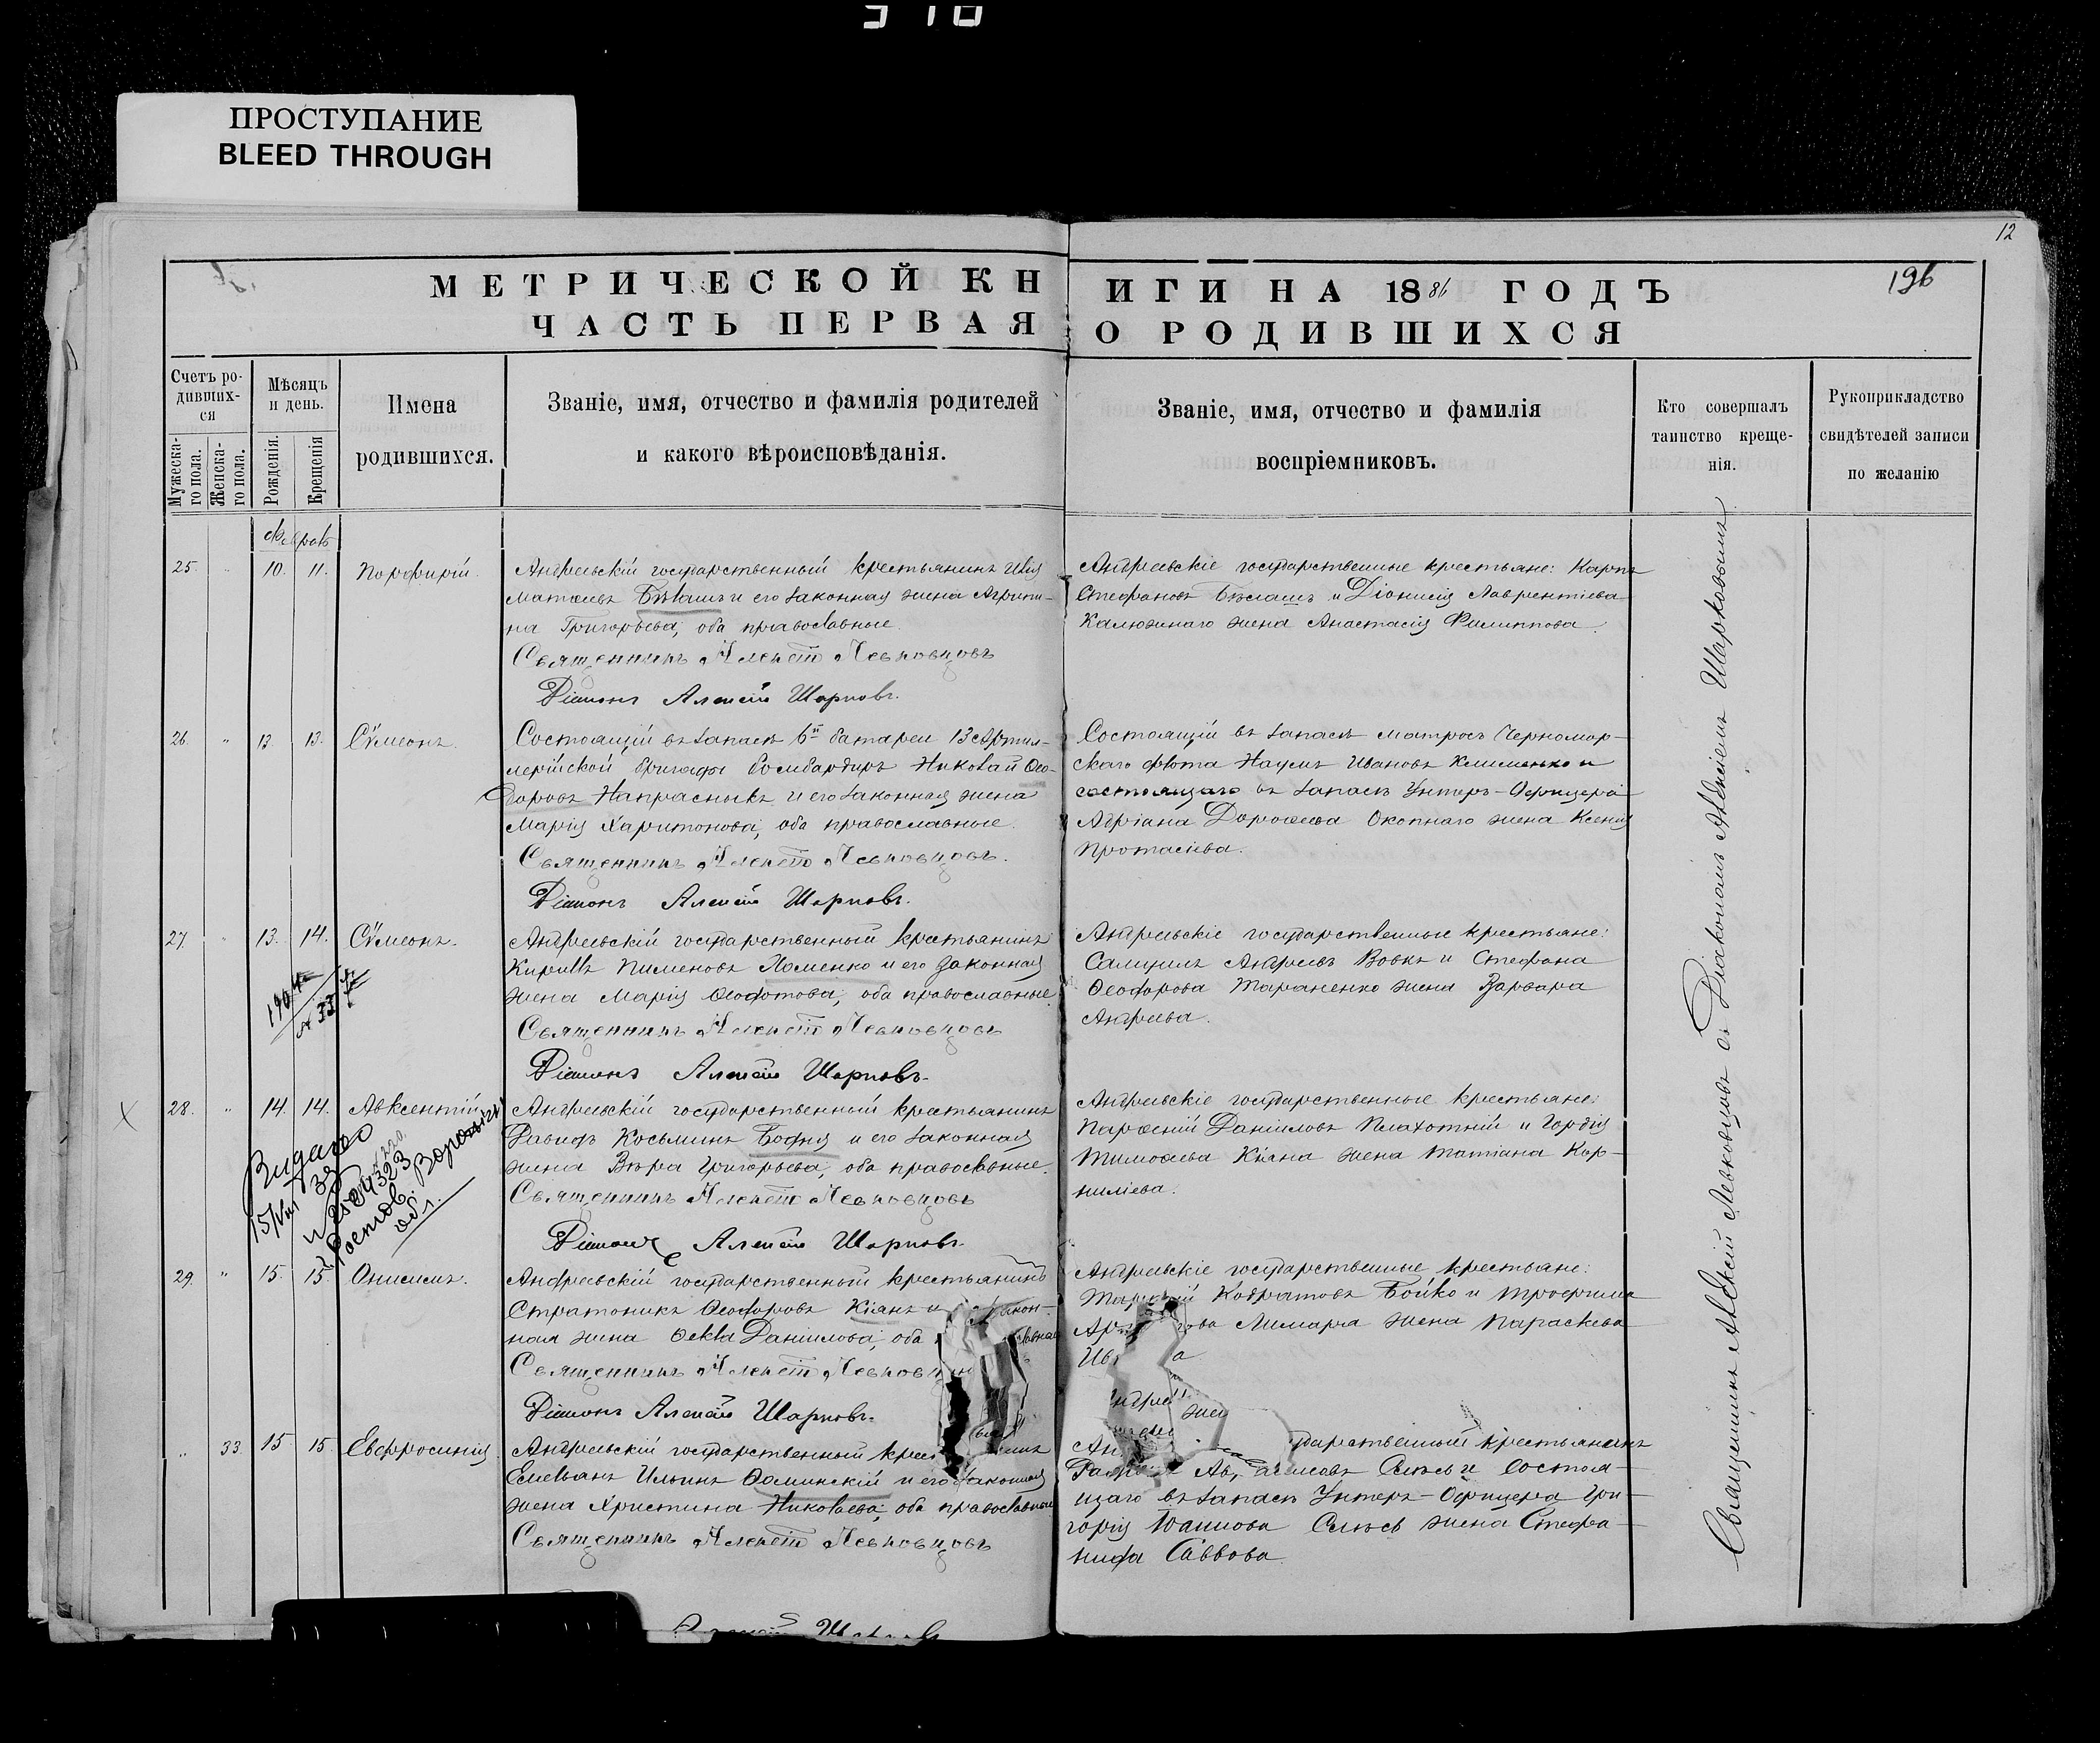 ПРОСТУПАНИЕ
BLEED THROUGH
12
196
МЕТРИЧЕСКОЙ КНИГИ НА 1886 ГОДЪ
ЧАСТЬ ПЕРВАЯ О РОДИВШИХСЯ
Счетъ ро-
дивших-
ся
Мужеска-
го пола.
Женска-
го пола.
Мѣсяцъ
и день.
Рожденія.
Крещенія
Имена
родившихся.
Званіе, имя, отчество и фамилія родителей
и какого вѣроисповѣданія.
Званіе, имя, отчество и фамилія
воспріемниковъ.
Кто совершалъ
таинство креще-
нія.
Рукоприкладство
свидѣтелей записи
по желанію
25. " 10. 11. Порфирій.
Андреевскій государственный крестьянинъ
Матѳеевъ Бѣлашъ и его законная жена Агрипи-
на Григорьева, оба православные.
Священникъ Алексій Левковцовъ
Діаконъ Алексій Шарковъ.
Андреевскіе государственные крестьяне: Карпъ
Стефановъ Бѣлашъ и Діонисія Лаврентіева
Калюжнаго жена Анастасія Филиппова.
26. " 13. 13. Сѵмеонъ.
Состоящій въ запасѣ 6й батареи 13 Артил-
лерійской бригады бомбардиръ Николай Ѳео-
доровъ Напрасныкъ и его законная жена
Марія Харитонова, оба православные.
Священникъ Алексій Левковцовъ.
Діаконъ Алексій Шарковъ.
Состоящій въ запасѣ матросъ Черномор-
скаго флота Наумъ Ивановъ Клименко и
состоящаго въ запасѣ Унтеръ-Офицера
Адріана Дороѳеева Окопнаго жена Ксенія
Протасіева.
27. " 13. 14. Сѵмеонъ.
Андреевскій государственный крестьянинъ
Кириллъ Пименовъ Хоменко и его законная
жена Марія Ѳеодотова, оба православные.
Священникъ Алексій Левковцовъ
Діаконъ Алексій Шарковъ.
Андреевскіе государственные крестьяне:
Самуилъ Андреевъ Вовкъ и Стефана
Ѳеодорова Тараненко жена Варвара
Андреева.
28. " 14. 14. Авксентій
Андреевскій государственный крестьянинъ
Давидъ Косьминъ Бодня и его законная
жена Вѣра Григорьева, оба православные.
Священникъ Алексій Левковцовъ
Діаконъ Алексій Шарковъ.
Андреевскіе государственные крестьяне:
Парѳеній Даніиловъ Плахотній и Гордія
Тимоѳеева Кіяна жена Татіана Кор-
ниліева.
29. " 15. 15. Онисимъ.
Андреевскій государственный крестьянинъ
Стратоникъ Ѳеодоровъ Кіянъ и
ная жена Ѳекла Даніилова, оба
Священникъ Алексій
Діаконъ Алексій Шарковъ.
Андреевскіе государственные крестьяне:
Кодратовъ Бойко и Трофима
Лимаря жена Параскева
" 33. 15 15 Евфросинія
Андреевскій государственный
Емельянъ Ильинъ Ѳоминскій и его законная
жена Христина Николаева, оба православные
Священникъ Алексій Левковцовъ
крестьянинъ
и состоя-
щаго въ запасѣ Унтеръ-Офицера Гри-
горія Іоаннова жена Стефа-
нида Саввова.
Священникъ Алексій Левковцовъ съ Діакономъ Алексіемъ Шарковымъ